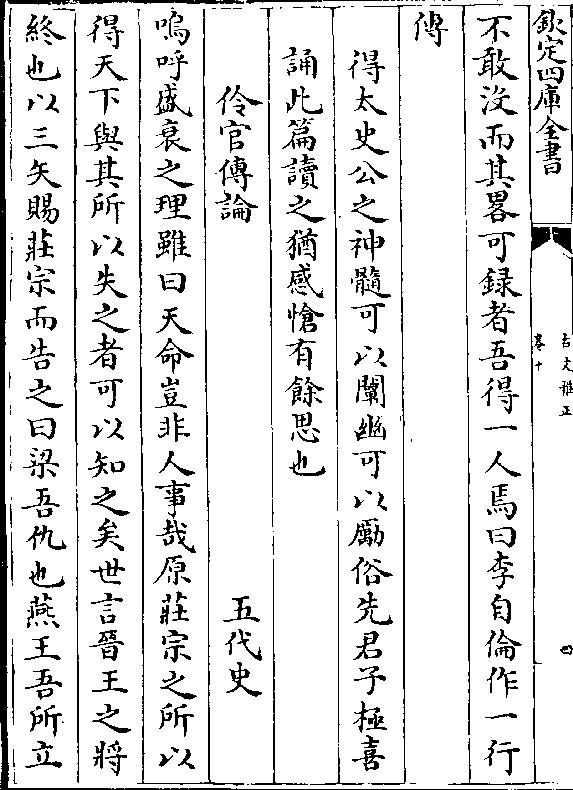 欽定四庫全書
古文雅正
卷十
不敢沒而其畧可録者吾得一人焉曰李自倫作一行
傳
得太史公之神髓可以闡幽可以勵俗先君子極喜
誦此篇讀之猶感愴有餘思也
伶官傳論 五代史
嗚呼盛衰之理雖曰天命豈非人事哉原莊宗之所以
得天下與其所以失之者可以知之矣世言晉王之將
終也以三矢賜莊宗而告之曰梁吾仇也燕王吾所立